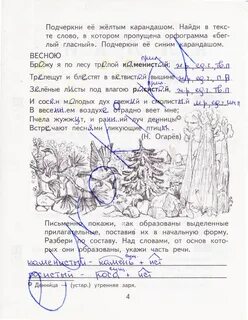 Подчеркни её жёлтым карандашом. Найди в тексте слово, в котором пропущена орфограмма «беглый гласный». Подчеркни её синим карандашом.
ВЕСНОЮ
Брожу я по лесу тропой каменистой; ж.р., ед.ч., Тв.п
Трепещут и блестят в вышине
Зелёные листы под влагою
И сосен молодых дух свежий и смолистый м.р., ед.ч.
В весеннем воздухе отрадно веет мне;
Пчела жужжит, и ранний луч денницы
Встречают песнями ликующие птицы.
(Н. Огарёв)
Письменно покажи, как образованы выделенные
прилагательные, поставив их в начальную форму.
Разбери по составу. Над словами, от основ кото-
рых они образованы, укажи часть речи.
каменистый - камень + ист
росистый - роса + ист
Денница — (устар.) утренняя заря.
4